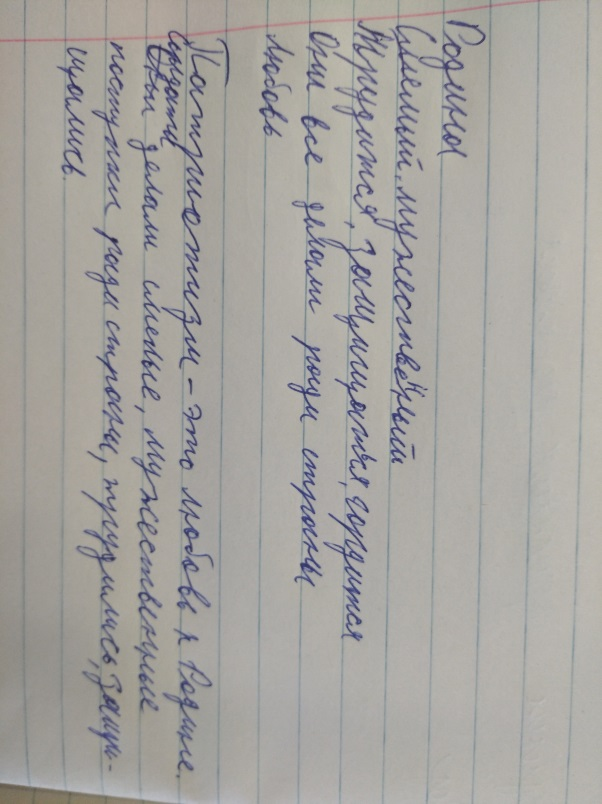 Родина
Смелый, мужественный
Трудится, защищается, гордится
Они все делали ради страны
Любовь
Патриотизм - это любовь к Родине.
Солдаты делали смелые, мужественные
поступки ради страны, трудились, защи-
щались.